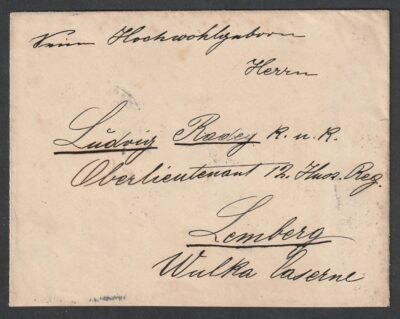 Seiner Hochwohlgeborn
Herrn
Ludvig Radey K. u. K.
Oberlieutenant 12. Hus. Reg.
Lemberg
Wulka Caserne